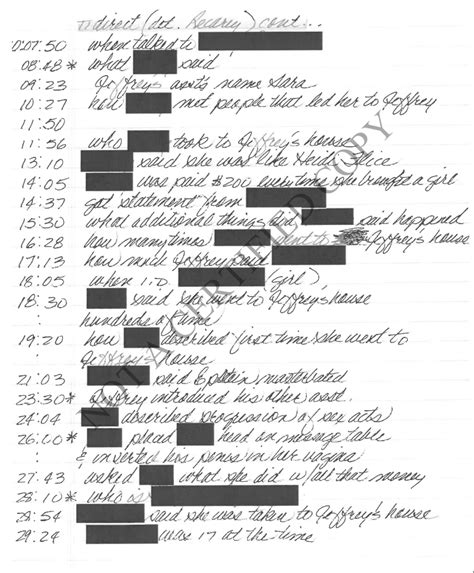 direct (det. Recarey) cont...
0:07:50 when talked to
08:48* what said
09:23 Joffrey's asst's name Sara
10:27 how met people that led her to Joffrey
11:50
11:56 who took to Joffrey's house
13:10 said she was like Heidi Flice
14:05 was paid $200 everytime she brought a girl
14:37 got statement from
15:30 what additional things did said happened
16:28 how many times went to Joffrey's house
17:13 how much Joffrey paid
18:05 when I.D. (girl)
18:30 said she went to Joffrey's house
: hundreds of time
19:20 how described first time she went to
: Joffrey's house
21:03 said Epstein masturbated
23:30* Joffrey introduced his other asst.
24:04 described progression of sex acts)
26:10* placed head on massage table
: & inserted his penis in her vagina
27:43 asked what she did w/all that money
28:10* who is
28:54 said she was taken to Joffrey's house
29:24 was 17 at the time
NOT A CERTIFIED COPY